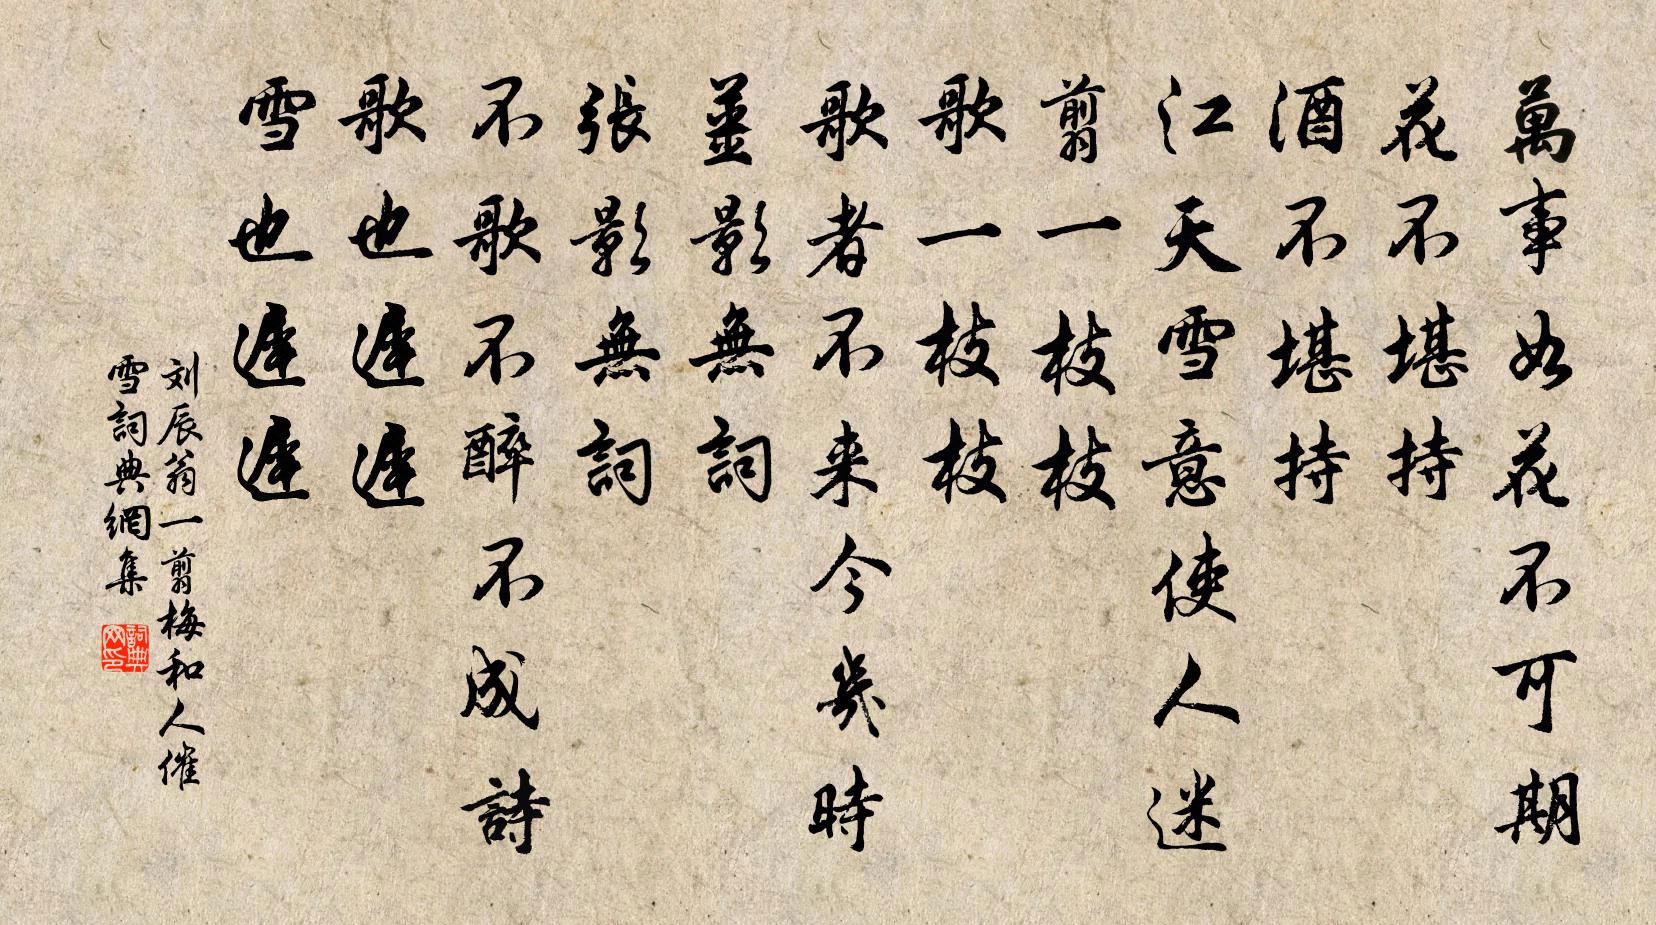 萬事如花不可期
花不堪持
酒不堪持
江天雪意使人迷
翦一枝枝
歌一枝枝
歌者不来今幾時
薑影無詞
張影無詞
不歌不醉不成詩
歌也遲遲
雪也遲遲
刘辰翁一翦梅和人催
雪詞典網集
詞典
网印